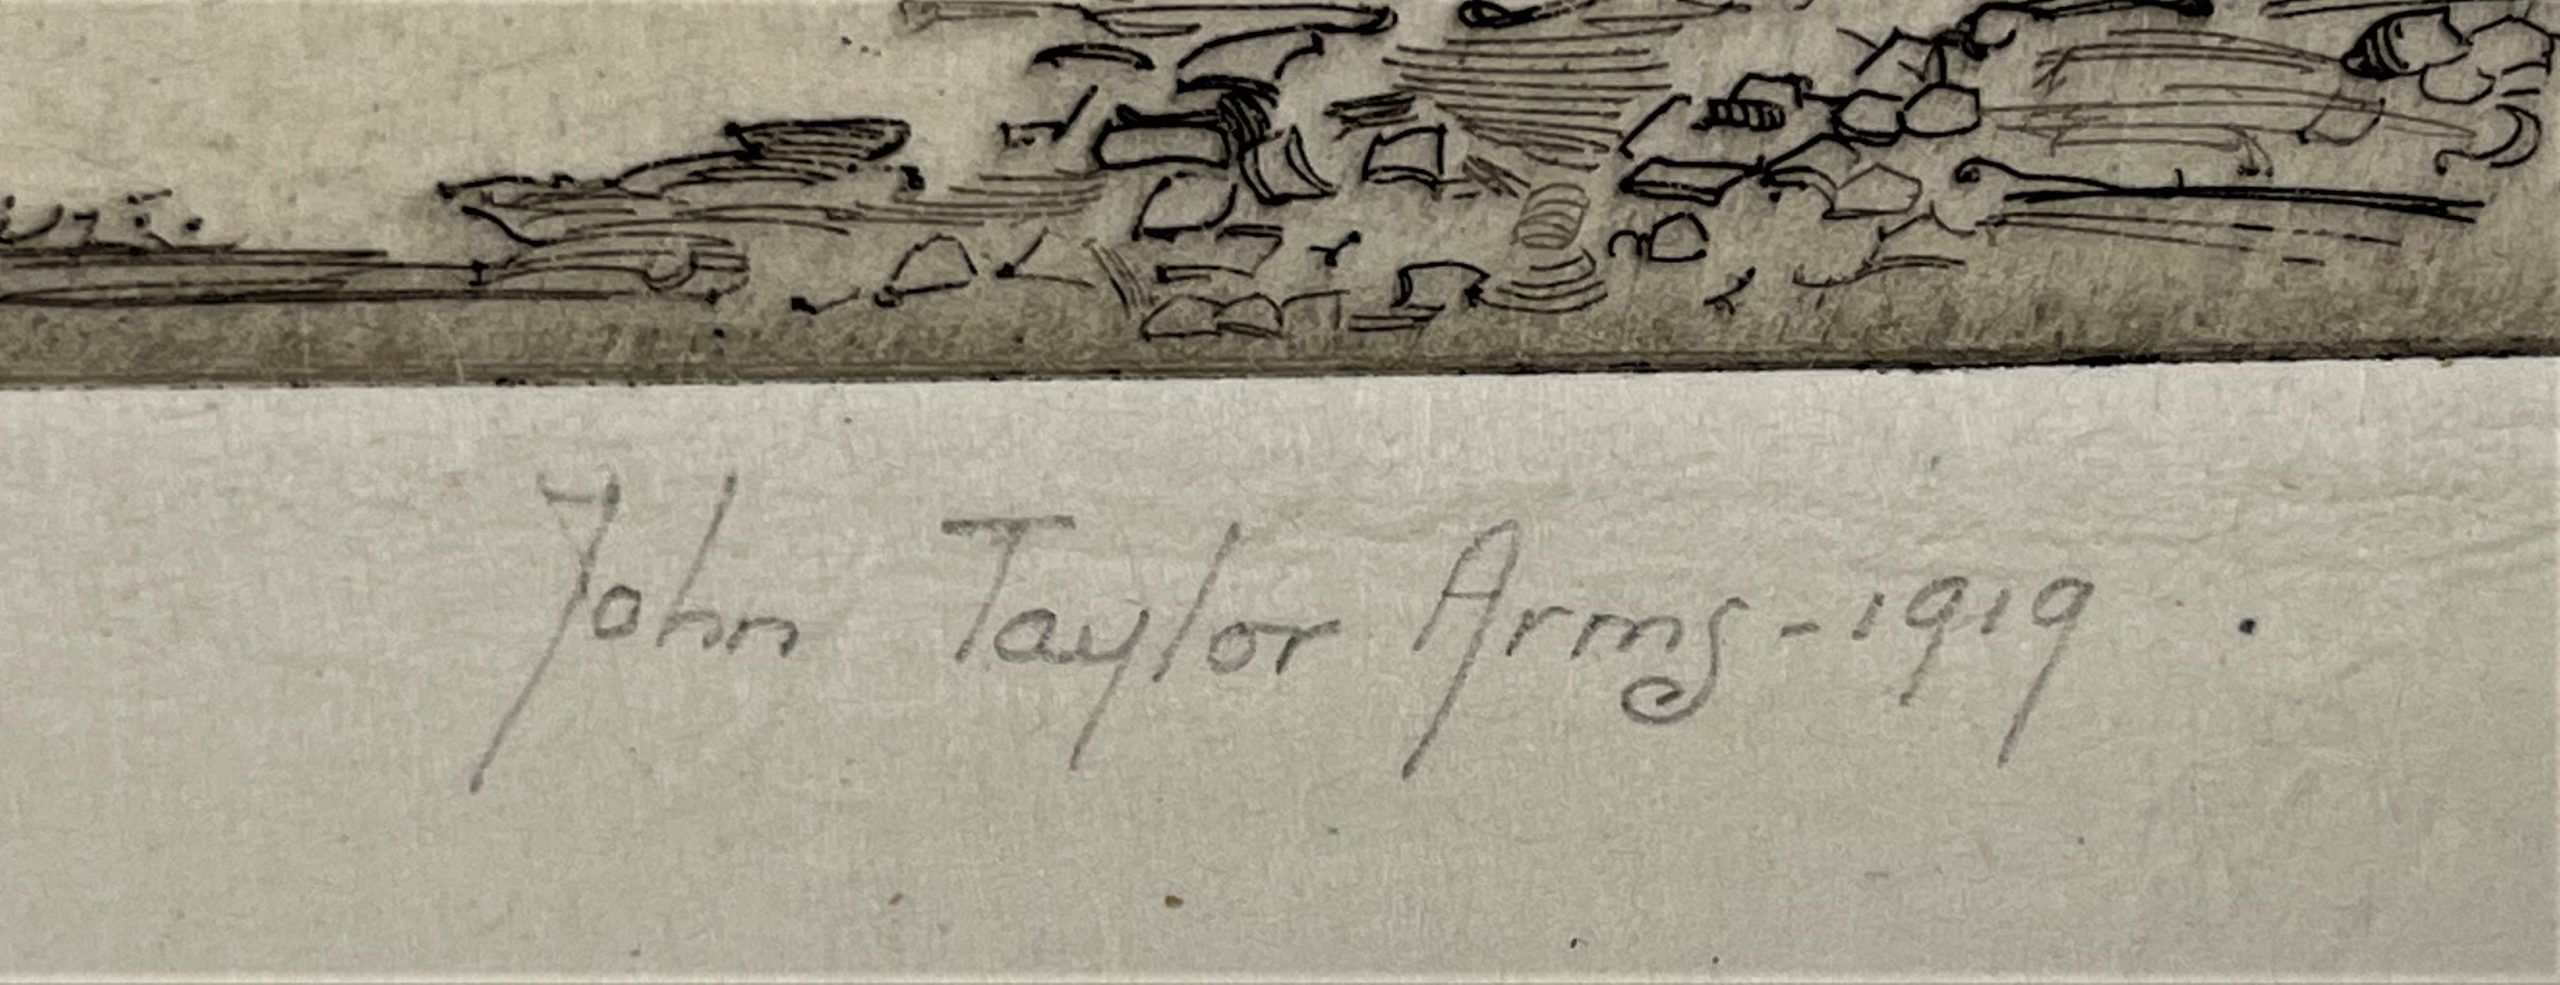 John Taylor Arms-1919